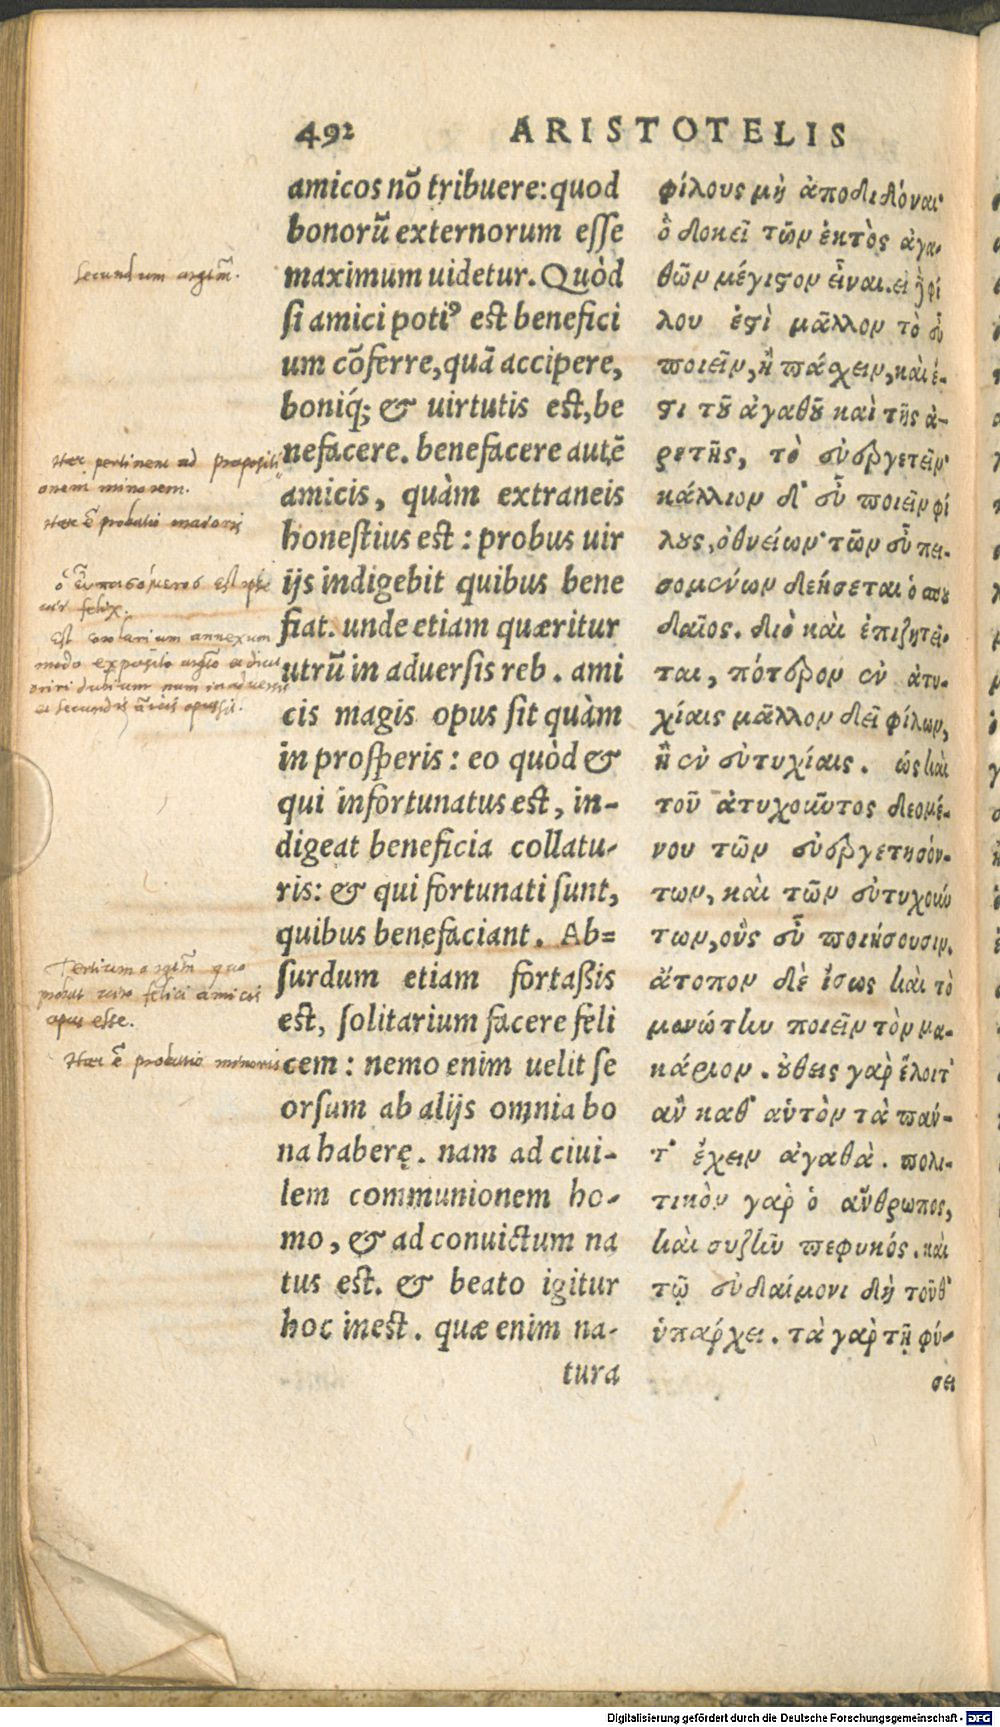 492 ARISTOTELIS
amicos nõ tribuere: quod
bonorũ externorum esse
maximum uidetur. Quòd
si amici potiꝰ est benefici
um cõferre, quã accipere,
boniq́; & uirtutis est, be
nefacere. benefacere autẽ
amicis, quàm extraneis
honestius est: probus uir
ijs indigebit quibus bene
fiat. unde etiam quæritur
utrũ in aduersis reb. ami
cis magis opus sit quàm
in prosperis: eo quòd &
qui infortunatus est, in-
digeat beneficia collatu-
ris: & qui fortunati sunt,
quibus benefaciant. Ab=
surdum etiam fortaßis
est, solitarium facere feli
cem: nemo enim uelit se
orsum ab alijs omnia bo
na habere. nam ad ciui-
lem communionem ho-
mo, & ad conuictum na
tus est. & beato igitur
hoc inest. quæ enim na-
tura
φίλους μὴ ἀποδιδόναι·
ὃ δοκεῖ τῶν ἐκτὸς ἀγα-
θῶν μέγιστον εἶναι. εἰ ἢ φί
λου ἐστὶ μᾶλλον τὸ εὖ
ποιεῖν, ἢ πάσχειν, καὶ ἔ-
στι τοῦ ἀγαθοῦ καὶ τῆς ἀ-
ρετῆς, τὸ εὐεργετεῖν·
κάλλιον δ' εὖ ποιεῖν φί
λους, ὀθνείων· τῶν εὖ πει-
σομένων δεήσεται ὁ σπου
δαῖος. διὸ καὶ ἐπιζητεῖ-
ται, πότερον ἐν ἀτυ-
χίαις μᾶλλον δεῖ φίλων,
ἢ ἐν εὐτυχίαις. ὡς καὶ
τοῦ ἀτυχοῦντος δεομέ-
νου τῶν εὐεργετησόν-
των, καὶ τῶν εὐτυχούν
των, οὓς εὖ ποιήσουσιν.
ἄτοπον δὲ ἴσως καὶ τὸ
μονώτην ποιεῖν τὸν μα-
κάριον. οὐθεὶς γὰρ ἕλοιτ'
ἂν καθ' αὑτὸν τὰ πάν-
τ' ἔχειν ἀγαθὰ. πολι-
τικὸν γὰρ ὁ ἄνθρωπος,
καὶ συζῆν πεφυκός. καὶ
τῷ εὐδαίμονι δὴ τοῦθ'
ὑπάρχει. τὰ γὰρ τῇ φύ-
σει
Secundum argm̃.
Hæc pertinent ad propositi
onem minorem.
Hæc ẽ probatio maioris
vir felix.
Est corolarium annexum
Tertium argm̃ quo
probat viro felici amicis
opus esse.
Hæc ẽ probatio minoris
Digitalisierung gefördert durch die Deutsche Forschungsgemeinschaft - DFG